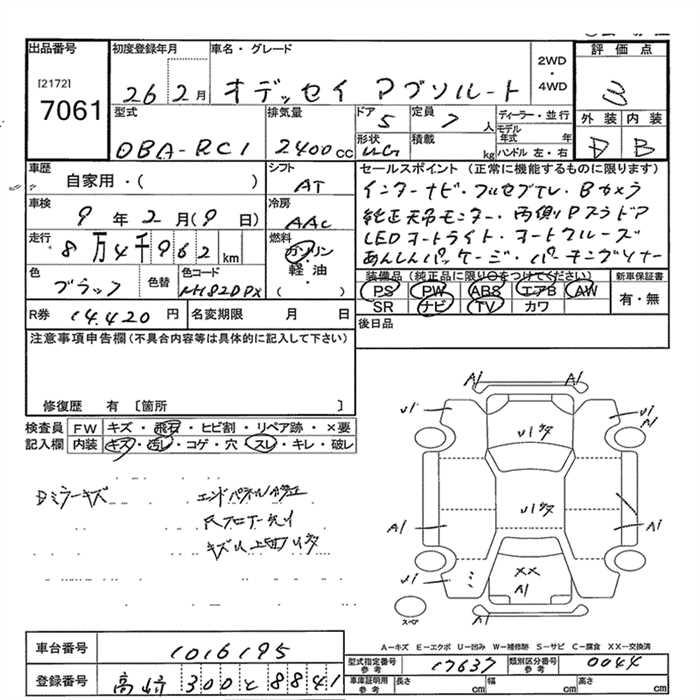 出品番号
[2172]
7061
初度登録年月
26 2月
車名・グレード
オデッセイ アブソルート
2WD
・
4WD
評価点
3
外装 内装
D B
型式
DBA-RC1
排気量
2400cc
ドア
5
定員
7人
形状
積載
kg
ディーラー・並行
モデル年式 年
ハンドル 左・右
車歴
自家用・( )
シフト
AT
セールスポイント (正常に機能するものに限ります)
インターナビ・フルセグTV・Bカメラ
純正天吊モニター・両側Pスラドア
LEDオートライト・オートクルーズ
あんしんパッケージ・パーキングソナー
車検
9年2月(9日)
冷房
AAC
走行
8万4千962km
燃料
ガソリン
軽油
( )
色
ブラック
色替
色コード
NH820PX
装備品 (純正品に限り○をつけてください)
PS PW ABS エアB AW
SR ナビ TV カワ
新車保証書
有・無
R券
14,420円
名変期限 月 日
後日品
注意事項申告欄(不具合内容等は具体的に記入して下さい)
修復歴 有 〔箇所 〕
検査員記入欄
FW キズ・飛石・ヒビ割・リペア跡・×要
内装 キズ・汚レ・コゲ・穴・スレ・キレ・破レ
Dミラーキズ
エンドパネル修正
Rフロアー
キズ
A1 A1
U1 U1
A1
U1キタ
U1キタ
A1 A1
U1 U1
XX
A1
A1
スペア
A-キズ E-エクボ U-凹み W-補修跡 S-サビ C-腐食 XX-交換済
車台番号
1016195
登録番号
高崎 300 と 8841
型式指定番号
参考
17637
類別区分番号
参考
0044
車庫証明用
参考
長さ cm
幅 cm
高さ cm